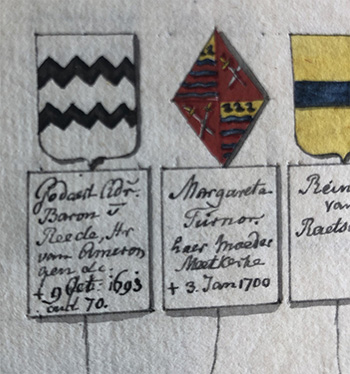 Godart Adr:
Baron v
Reede, Hr
van Ameron
gen &c.
+ 9 Oct: 1693
out 70.
Margareta
Turnor,
haer moeder
Moetkerke
+ 3. Jan 1700
Rein
van
Raets